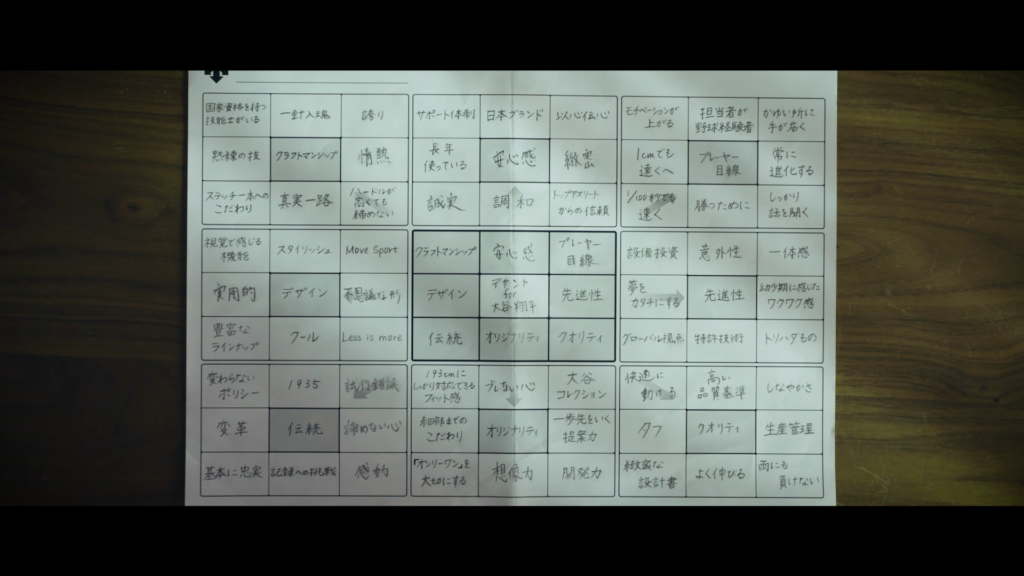 国家資格を持つ
技能士がいる
一針入魂
誇り
サポート体制
日本ブランド
以心伝心
モチベーションが
上がる
担当者が
野球経験者
かゆい所に
手が届く
熟練の技
クラフトマンシップ
情熱
長年
使っている
安心感
緻密
1cmでも
遠くへ
プレーヤー
目線
常に
進化する
ステッチ一本への
こだわり
真実一路
ハードルが
高くても
諦めない
誠実
調和
トップアスリート
からの信頼
1/100秒でも
速く
勝つために
しっかり
話を聞く
視覚で感じる
機能
スタイリッシュ
Move Sport
クラフトマンシップ
安心感
プレーヤー
目線
設備投資
意外性
一体感
実用的
デザイン
不思議な形
デザイン
デサント
for
大谷翔平
先進性
夢を
カタチにする
先進性
幼少期に感じた
ワクワク感
豊富な
ラインナップ
クール
Less is more
伝統
オリジナリティ
クオリティ
グローバル視点
特許技術
トリハダもの
変わらない
ポリシー
1935
試行錯誤
193cmに
しっかり対応できる
フィット感
ブレない心
大谷
コレクション
快適に
動ける
高い
品質基準
しなやかさ
変革
伝統
諦めない心
細部までの
こだわり
オリジナリティ
一歩先をいく
提案力
タフ
クオリティ
生産管理
基本に忠実
記録への挑戦
感動
「オンリーワン」を
大切にする
想像力
開発力
緻密な
設計書
よく伸びる
雨にも
負けない